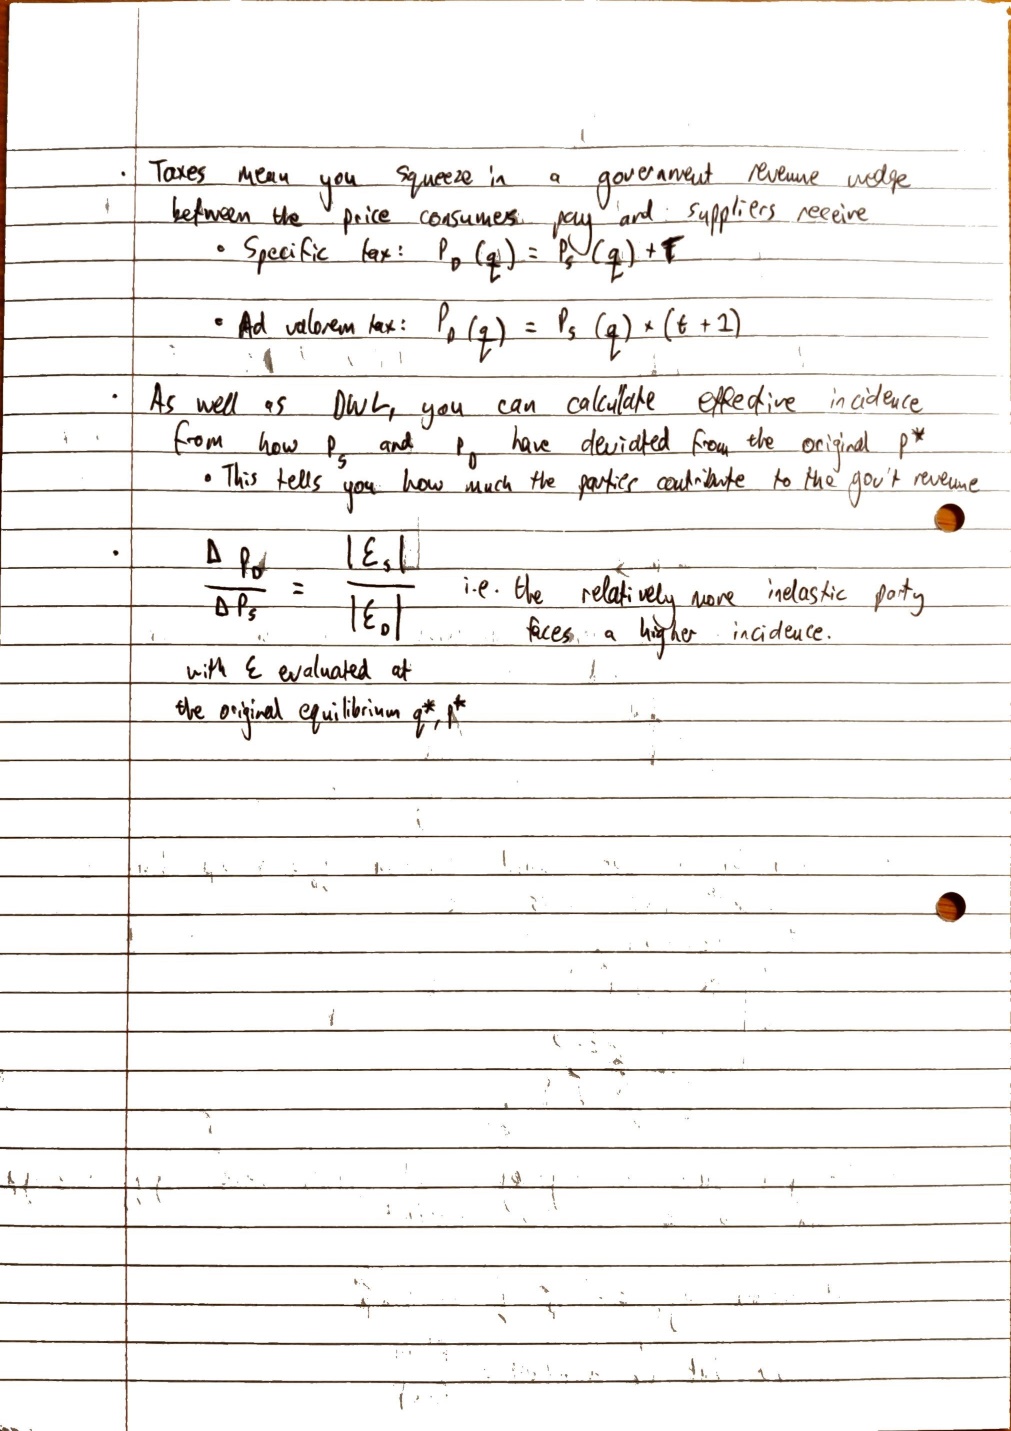 · Taxes mean you squeeze in a government revenue wedge
between the price consumers pay and suppliers receive
• Specific tax: P_D (q) = P_S (q) + T
• Ad valorem tax: P_D (q) = P_S (q) × (t + 1)
· As well as DWL, you can calculate effective incidence
from how P_S and P_D have deviated from the original P*
• This tells you how much the parties contribute to the gov't revenue
· ΔP_D / ΔP_S = |Ɛ_S| / |Ɛ_D| i.e. the relatively more inelastic party
faces a higher incidence.
with Ɛ evaluated at
the original equilibrium q*, p*